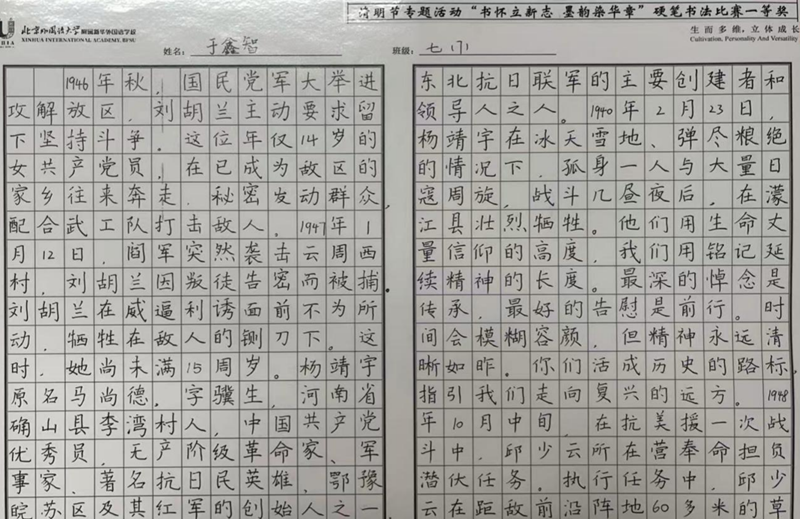 清明节专题活动“书怀立新志 墨韵染华章”硬笔书法比赛一等奖
北京外国语大学附属新华外国语学校
XINHUA INTERNATIONAL ACADEMY BFSU
生而多维，立体成长
Cultivation, Personality And Versatility
姓名： 于鑫智
班级： 七
1946年秋，国民党军大举进
攻解放区，刘胡兰主动要求留
下坚持斗争。这位年仅14岁的
女共产党员，在已成为敌区的
家乡往来奔走，秘密发动群众，
配合武工队打击敌人。1947年1
月12日，阎军突然袭击云周西
村，刘胡兰因叛徒告密而被捕。
刘胡兰在威逼利诱面前不为所
动，牺牲在敌人的铡刀下。这
时，她尚未满15周岁。杨靖宇
原名马尚德。字骥生，河南省
确山县李湾村人，中国共产党
优秀员，无产阶级革命家、军
事家、著名抗日民英雄、鄂豫
皖苏区及其红军的创始人之一
东北抗日联军的主要创建者和
领导人之人。1940年2月23日，
杨靖宇在冰天雪地、弹尽粮绝
的情况下，孤身一人与大量日
寇周旋，战斗几昼夜后，在濛
江县壮烈牺牲。他们用生命丈
量信仰的高度，我们用铭记延
续精神的长度。最深的悼念是
传承，最好的告慰是前行。时
间会模糊容颜，但精神永远清
晰如昨。你们活成历史的路标，
指引我们走向复兴的远方。1948
年10月中旬，在抗美援一次战
斗中，邱少云所在营奉命担负
潜伏任务。执行任务中，邱少
云在距敌前沿阵地60多米的草